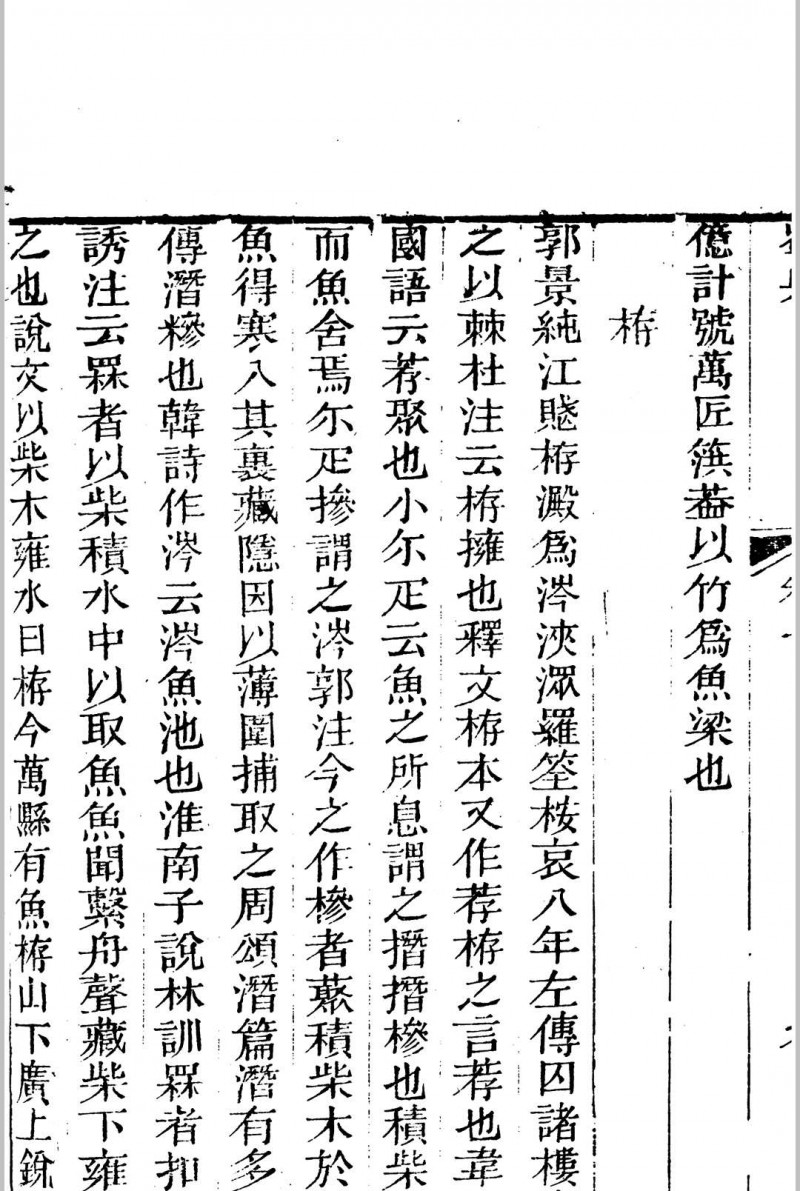 億計號萬匠篊葢以竹爲魚梁也
栫
郭景純江賧栫澱爲涔浹潀羅筌桉哀八年左傳囚諸樓
之以棘杜注云栫擁也釋文栫本又作荐栫之言荐也韋
國語云荐聚也小尒疋云魚之所息謂之㨽㨽槮也積柴
而魚舍焉尒疋摻謂之涔郭注今之作槮者藂積柴木於
魚得寒入其裏藏隱因以薄圍捕取之周頌潛篇潛有多
傳潛糝也韓詩作涔云涔魚池也淮南子說林訓罧者扣
誘注云罧者以柴積水中以取魚魚聞擊舟聲藏柴下雍
之也說文以柴木雍水曰栫今萬縣有魚栫山下廣上銳